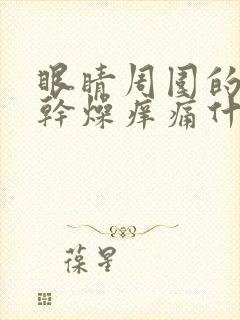 眼睛周围的
幹燥痒痛什
葆星